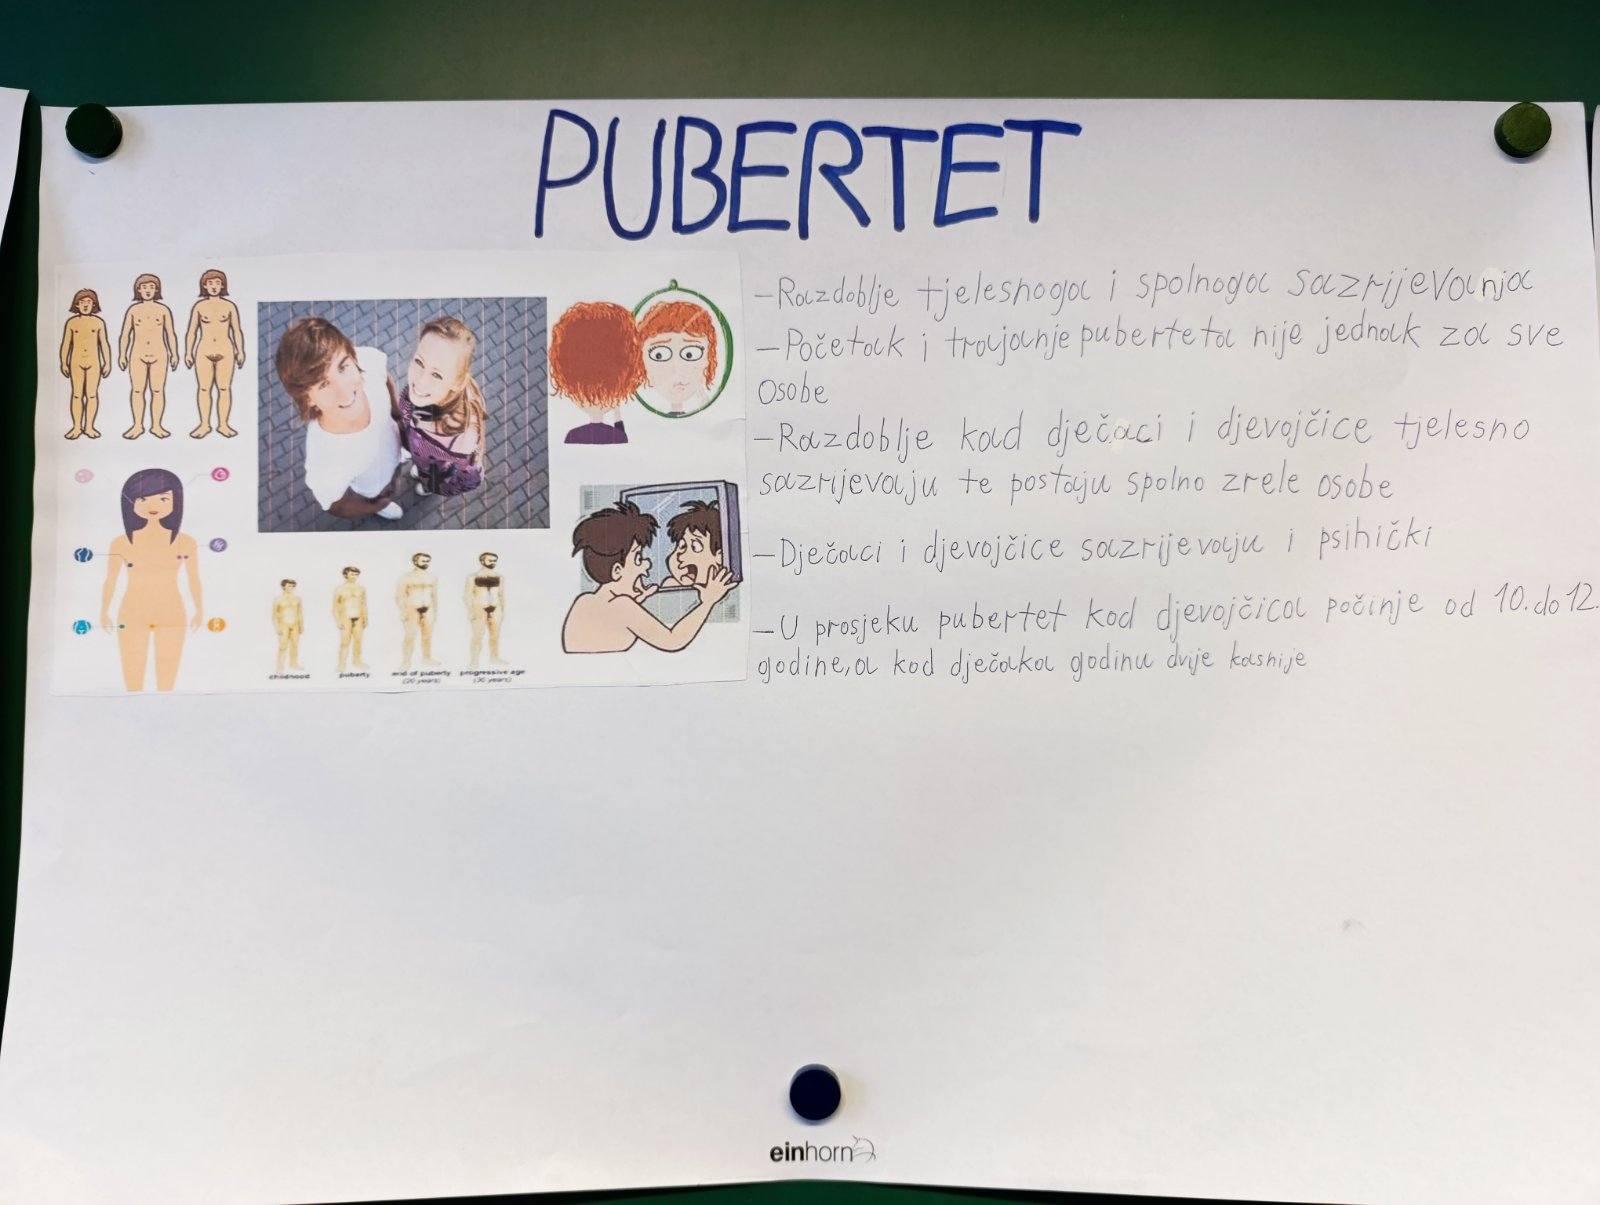 PUBERTET
-Razdoblje tjelesnoga i spolnoga sazrijevanja
-Početak i trajanje puberteta nije jednak za sve
osobe
-Razdoblje kad dječaci i djevojčice tjelesno
sazrijevaju te postaju spolno zrele osobe
-Dječaci i djevojčice sazrijevaju i psihički
-U prosjeku pubertet kod djevojčica počinje od 10. do 12.
godine, a kod dječaka godinu dvije kasnije
childhood
puberty
end of puberty
(20 years)
progressive age
(30 years)
einhorn